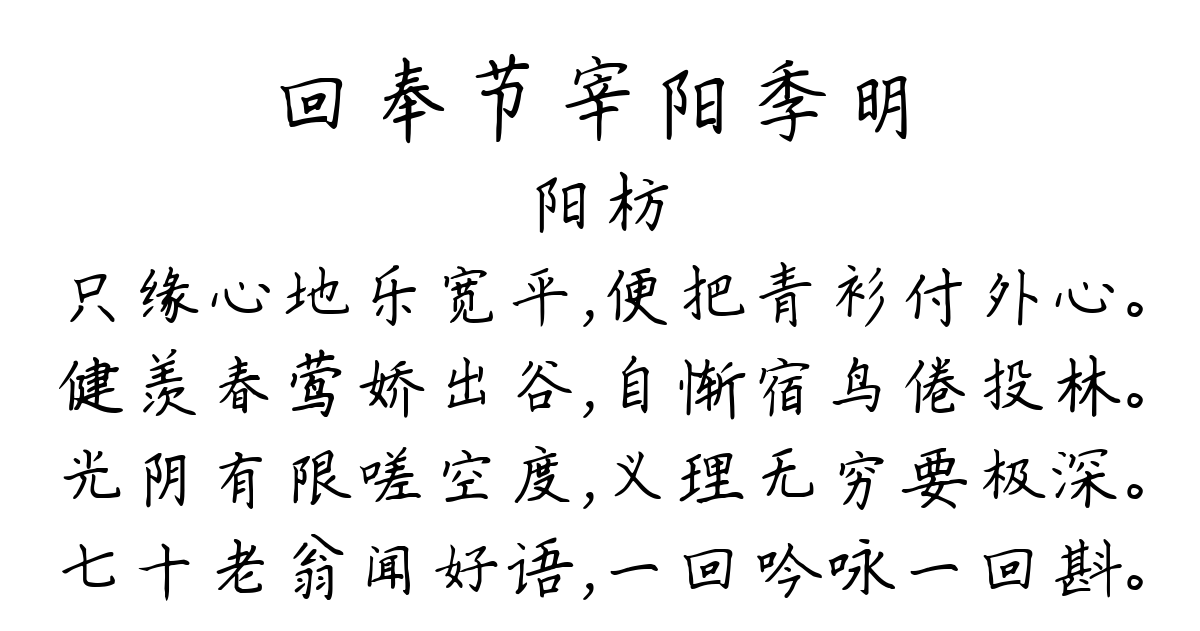 回奉节宰阳季明
阳枋
只缘心地乐宽平,便把青衫付外心。
健羡春莺娇出谷,自惭宿鸟倦投林。
光阴有限嗟空度,义理无穷要极深。
七十老翁闻好语,一回吟咏一回斟。